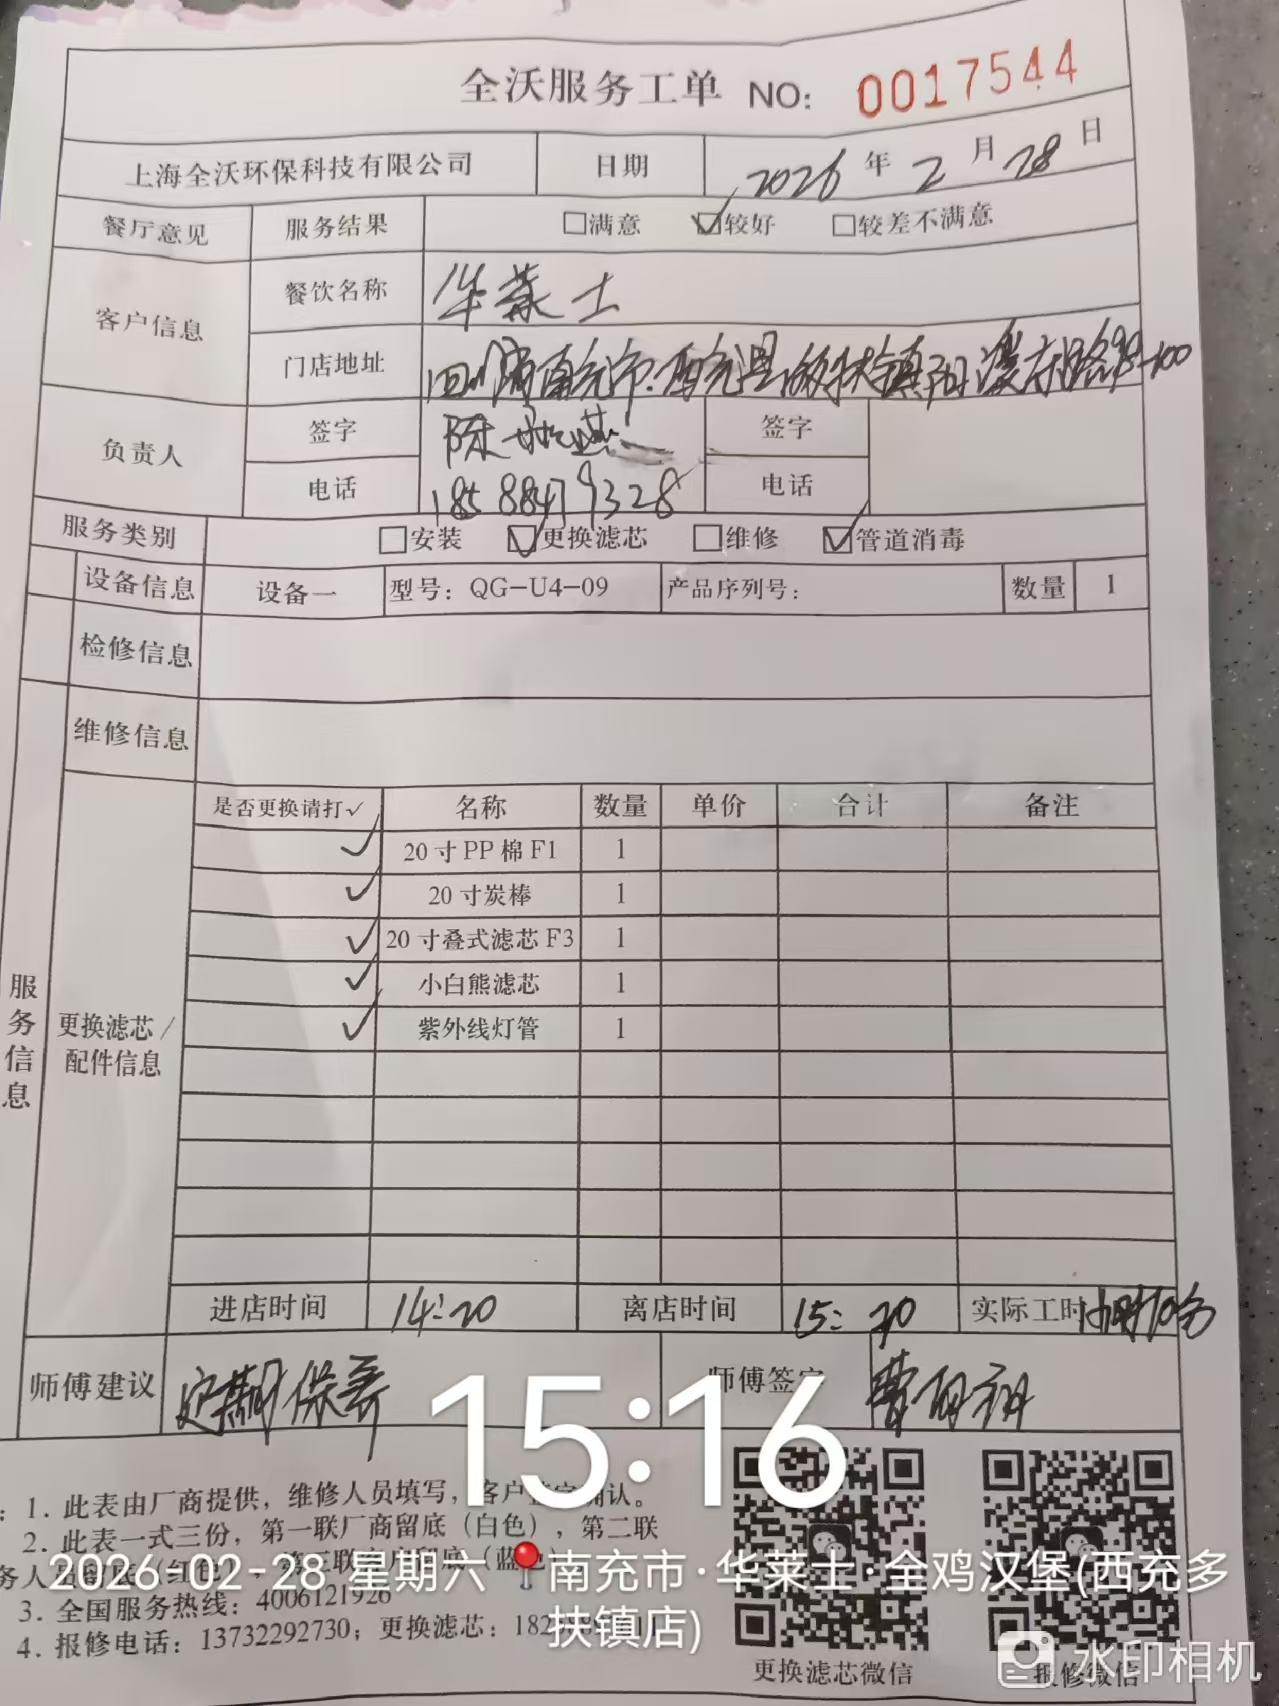 全沃服务工单 NO: 0017544
上海全沃环保科技有限公司 日期 2026年2月28日
餐厅意见 服务结果 □满意 ☑较好 □较差不满意
客户信息 餐饮名称 华莱士
门店地址 四川省南充市.西充县多扶镇阳溪东路98-100
负责人 签字 陈 燕 签字
电话 18588479328 电话
服务类别 □安装 ☑更换滤芯 □维修 ☑管道消毒
设备信息 设备一 型号：QG-U4-09 产品序列号： 数量 1
检修信息
维修信息
服务信息
更换滤芯/配件信息
是否更换请打✓ 名称 数量 单价 合计 备注
✓ 20寸PP棉F1 1
✓ 20寸炭棒 1
✓ 20寸叠式滤芯F3 1
✓ 小白熊滤芯 1
✓ 紫外线灯管 1
进店时间 14:20 离店时间 15:20 实际工时
师傅建议 定期保养 师傅签字 曹
15:16
: 1. 此表由厂商提供，维修人员填写，客户签字确认。
2. 此表一式三份，第一联厂商留底（白色），第二联
务人员留底（红色），第三联 留底（蓝色）
2026-02-28 星期六 南充市·华莱士·全鸡汉堡(西充多扶镇店)
3. 全国服务热线：4006121926
4. 报修电话：13732292730；更换滤芯：
更换滤芯微信 报修微信
水印相机